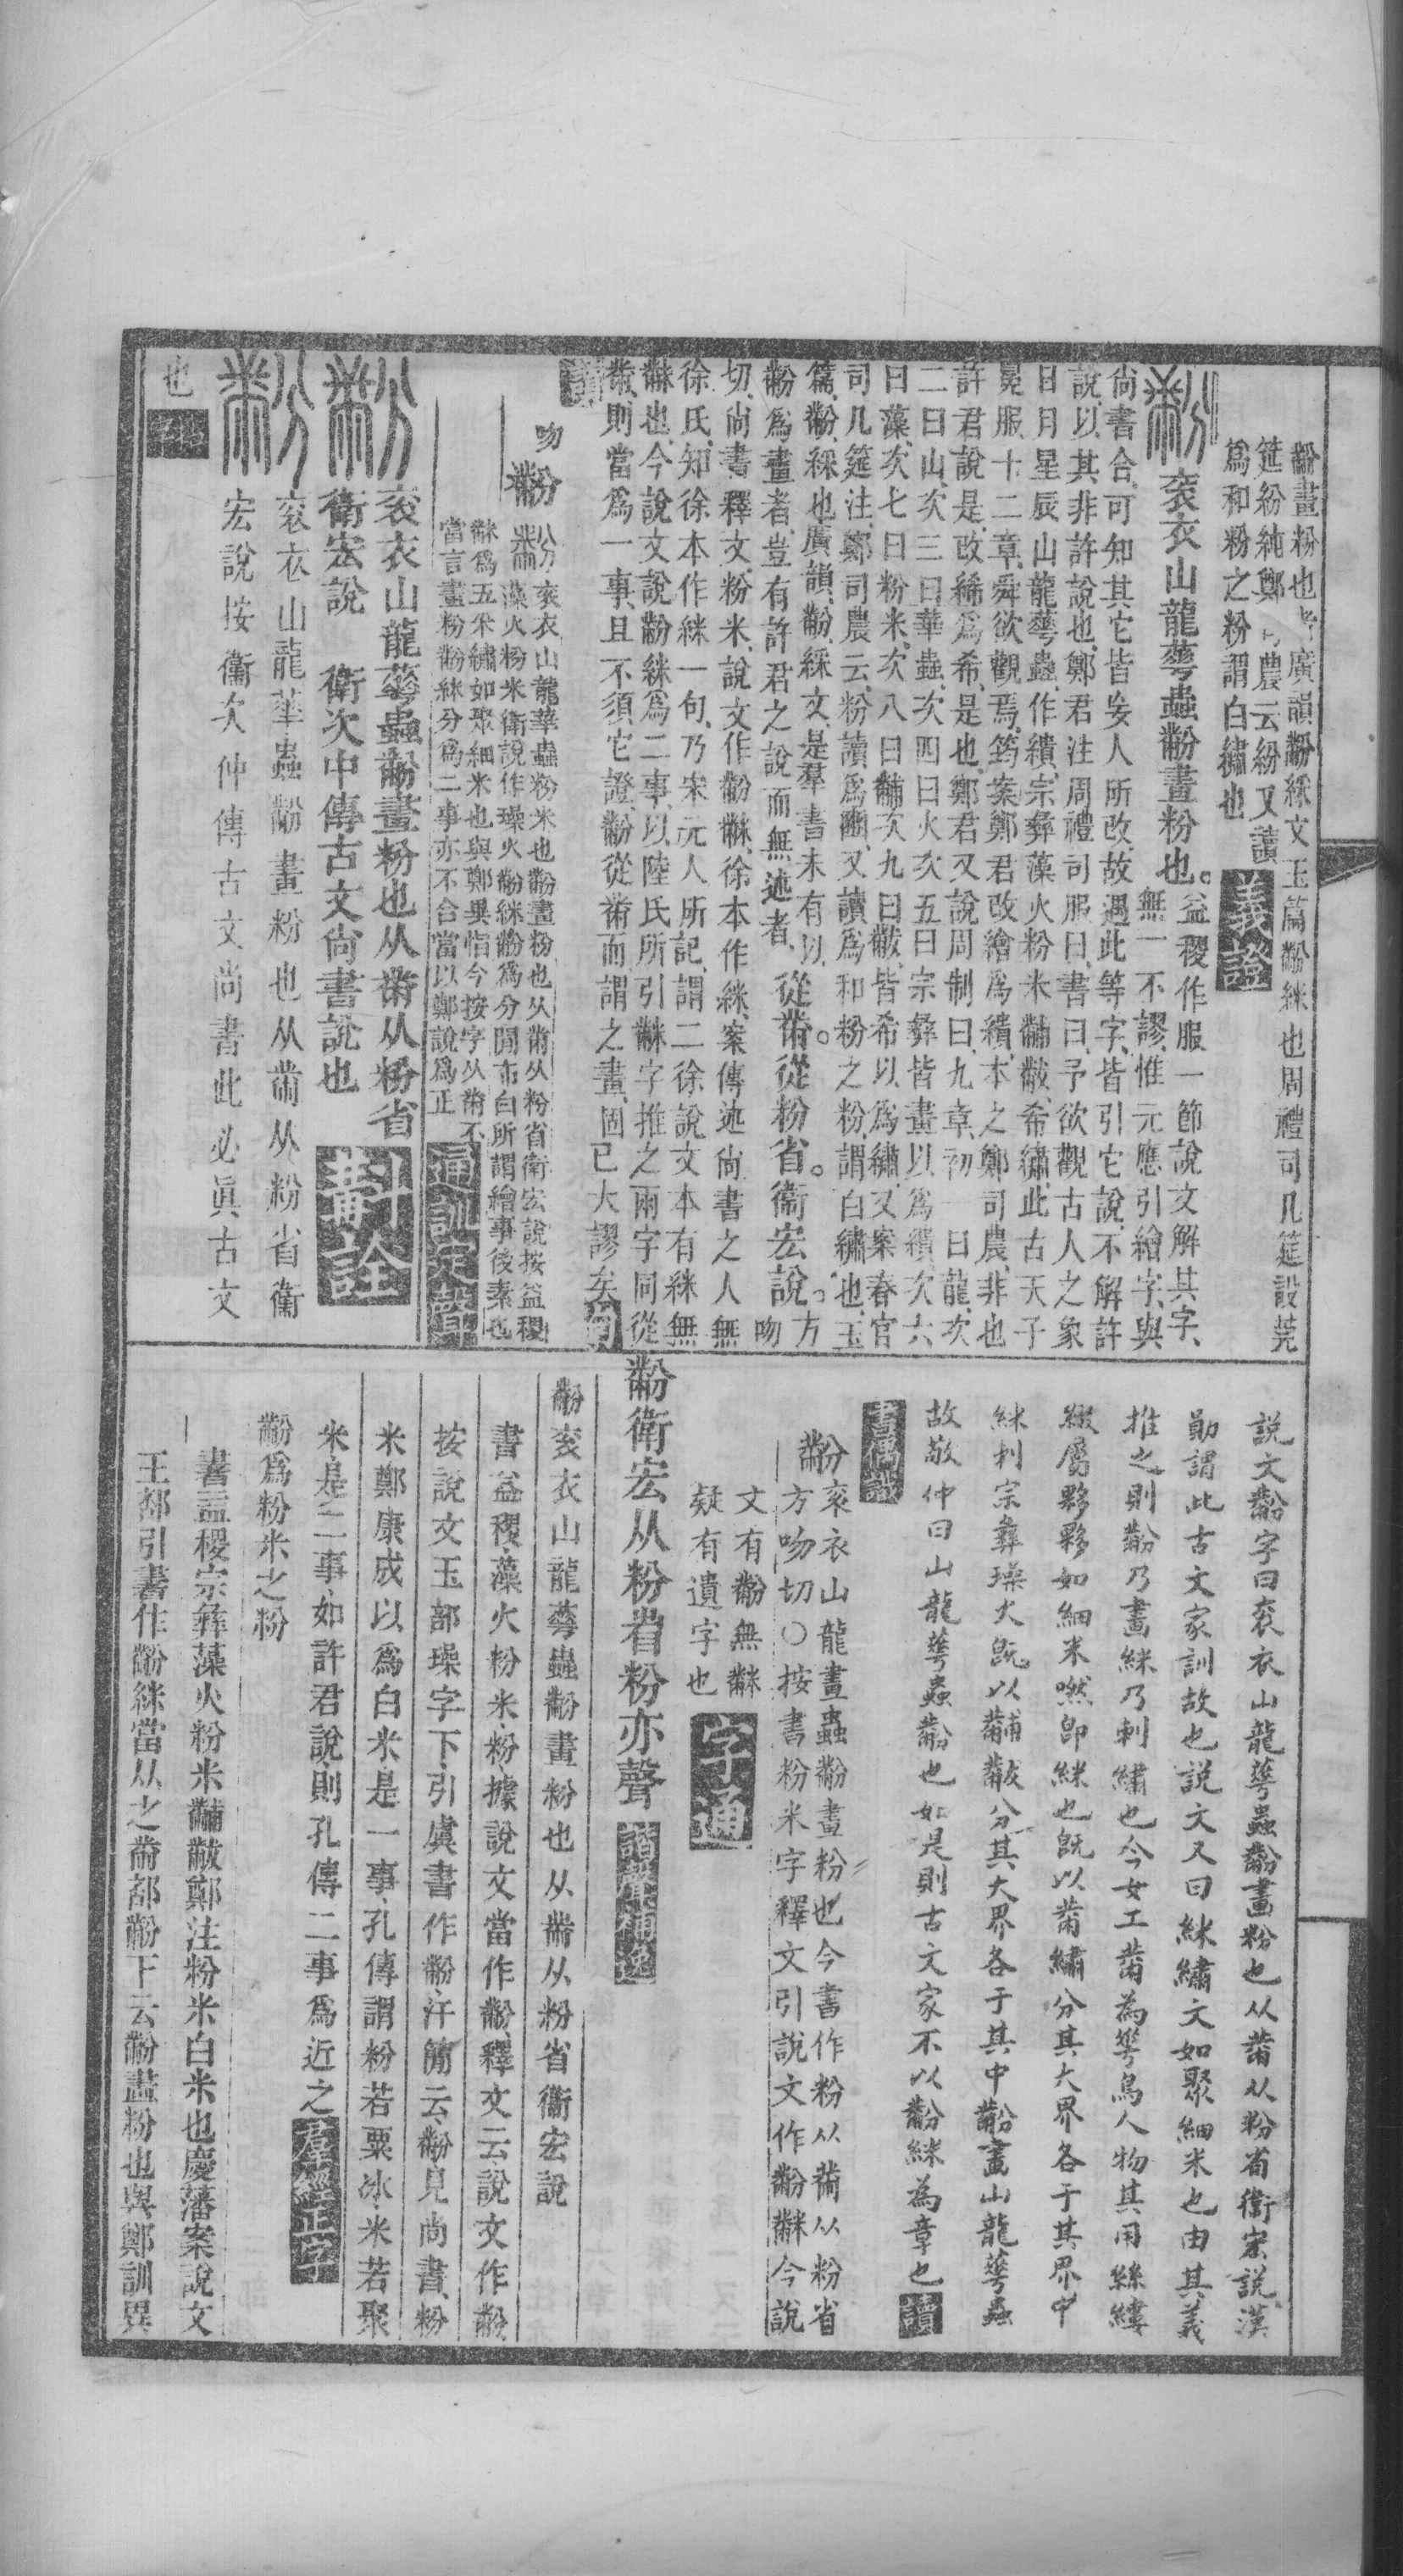 黺畫粉也者廣韻黺綵文玉篇黺絲也周禮司几筵設莞
筵紛純鄭司農云紛又讀
爲和粉之粉謂白繡也義證
袞衣山龍華蟲黺畫粉也。益稷作服一節說文解其字、
無一不謬、惟元應引繪字、與
尚書合、可知其它皆妄人所改、故遇此等字、皆引它說、不解許
說、以其非許說也、鄭君注周禮司服曰、書曰、予欲觀古人之象
日月星辰山龍華蟲、作繢、宗彝藻火粉米黼黻、希繡、此古天子
冕服十二章、舜欲觀焉、筠案鄭君改繪爲繢、本之鄭司農、非也
許君說是、改絺爲希、是也、鄭君又說周制曰、九章、初一曰龍、次
二曰山、次三曰華蟲、次四曰火、次五曰宗彝皆畫以爲繢、次六
曰藻、次七曰粉米、次八曰黼、次九曰黻、皆希以爲繡、又案春官
司几筵注、鄭司農云、粉讀爲豳、又讀爲和粉之粉、謂白繡也、玉
篇、黺、綵也、廣韻、黺、綵文、是羣書未有以
黺爲畫者、豈有許君之說而無述者、從黹從粉省。衞宏說。方吻
切、尚書釋文、粉米、說文作黺䋛、徐本作絲、案傳述尚書之人無
徐氏、知徐本作絲一句、乃宋元人所記、謂二徐說文本有絲無
䋛也、今說文說黺絲爲二事、以陸氏所引䋛字推之兩字同從
黹、則當爲一事、且不須它證、黺從黹而謂之畫、固已大謬矣句
讀
吻 黺 袞衣山龍華蟲粉米也黺畫粉也从黹从粉省衛宏說按益稷
藻火粉米衛說作璪火黺絲黺爲分閒布白所謂繪事後素也
絲爲五采繡如聚細米也與鄭異恉今按字从黹不
當言畫粉黺絲分爲二事亦不合當以鄭說爲正通訓定聲
袞衣山龍華蟲黺畫粉也从黹从粉省
衛宏說 衛次中傳古文尚書說也斠詮
袞衣山龍華蟲黺畫粉也从黹从粉省衞
宏說按衞次仲傳古文尚書此必眞古文
也
說文黺字曰袞衣山龍華蟲黺畫粉也从黹从粉省衛宏說漢
勛謂此古文家訓故也說文又曰絲繡文如聚細米也由其義
推之則黺乃畫絲乃刺繡也今女工黹為華鳥人物其用絲縷
綴屬夥夥如細米然即絲也既以黹繡分其大界各于其界中
絲利宗彝璪火既以黼黻分其大界各于其中黺畫山龍華蟲
故敬仲曰山龍華蟲黺也如是則古文家不以黺絲為章也讀
書偶識
黺袞衣山龍畫蟲黺畫粉也今書作粉从黹从粉省
方吻切○按書粉米字釋文引說文作黺䋛今說
文有黺無䋛
疑有遺字也字通
黺衛宏从粉省粉亦聲諧聲補逸
黺袞衣山龍華蟲黺畫粉也从黹从粉省衞宏說
書益稷、藻火粉米、粉、據說文當作黺、釋文云、說文作黺
按說文玉部璪字下、引虞書作黺、汗簡云、黺、見尚書、粉
米鄭康成以爲白米、是一事、孔傳謂粉若粟冰、米若聚
米、是二事、如許君說、則孔傳二事爲近之羣經正字
黺爲粉米之粉
書益稷宗彝藻火粉米黼黻鄭注粉米白米也慶藩案說文
王部引書作黺絲當从之黹部黺下云黺畫粉也與鄭訓異